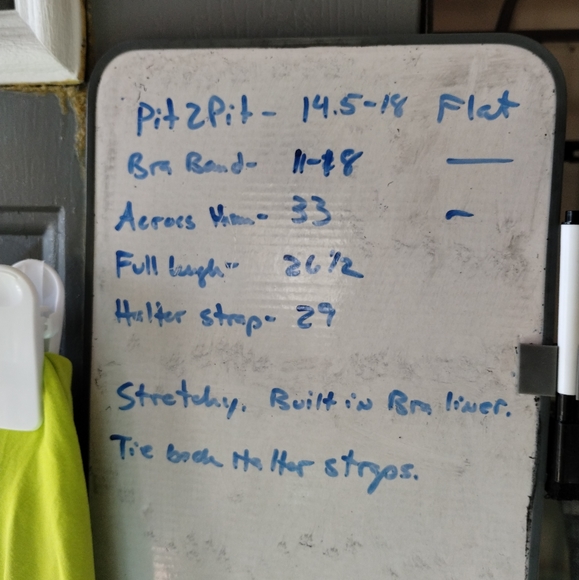 Pit 2 Pit - 14.5-18 Flat
Bra Band- 11-18 —
Across Hem- 33 –
Full length- 26 1/2
Halter strap- 29
Stretchy. Built in Bra liner.
Tie back Halter straps.